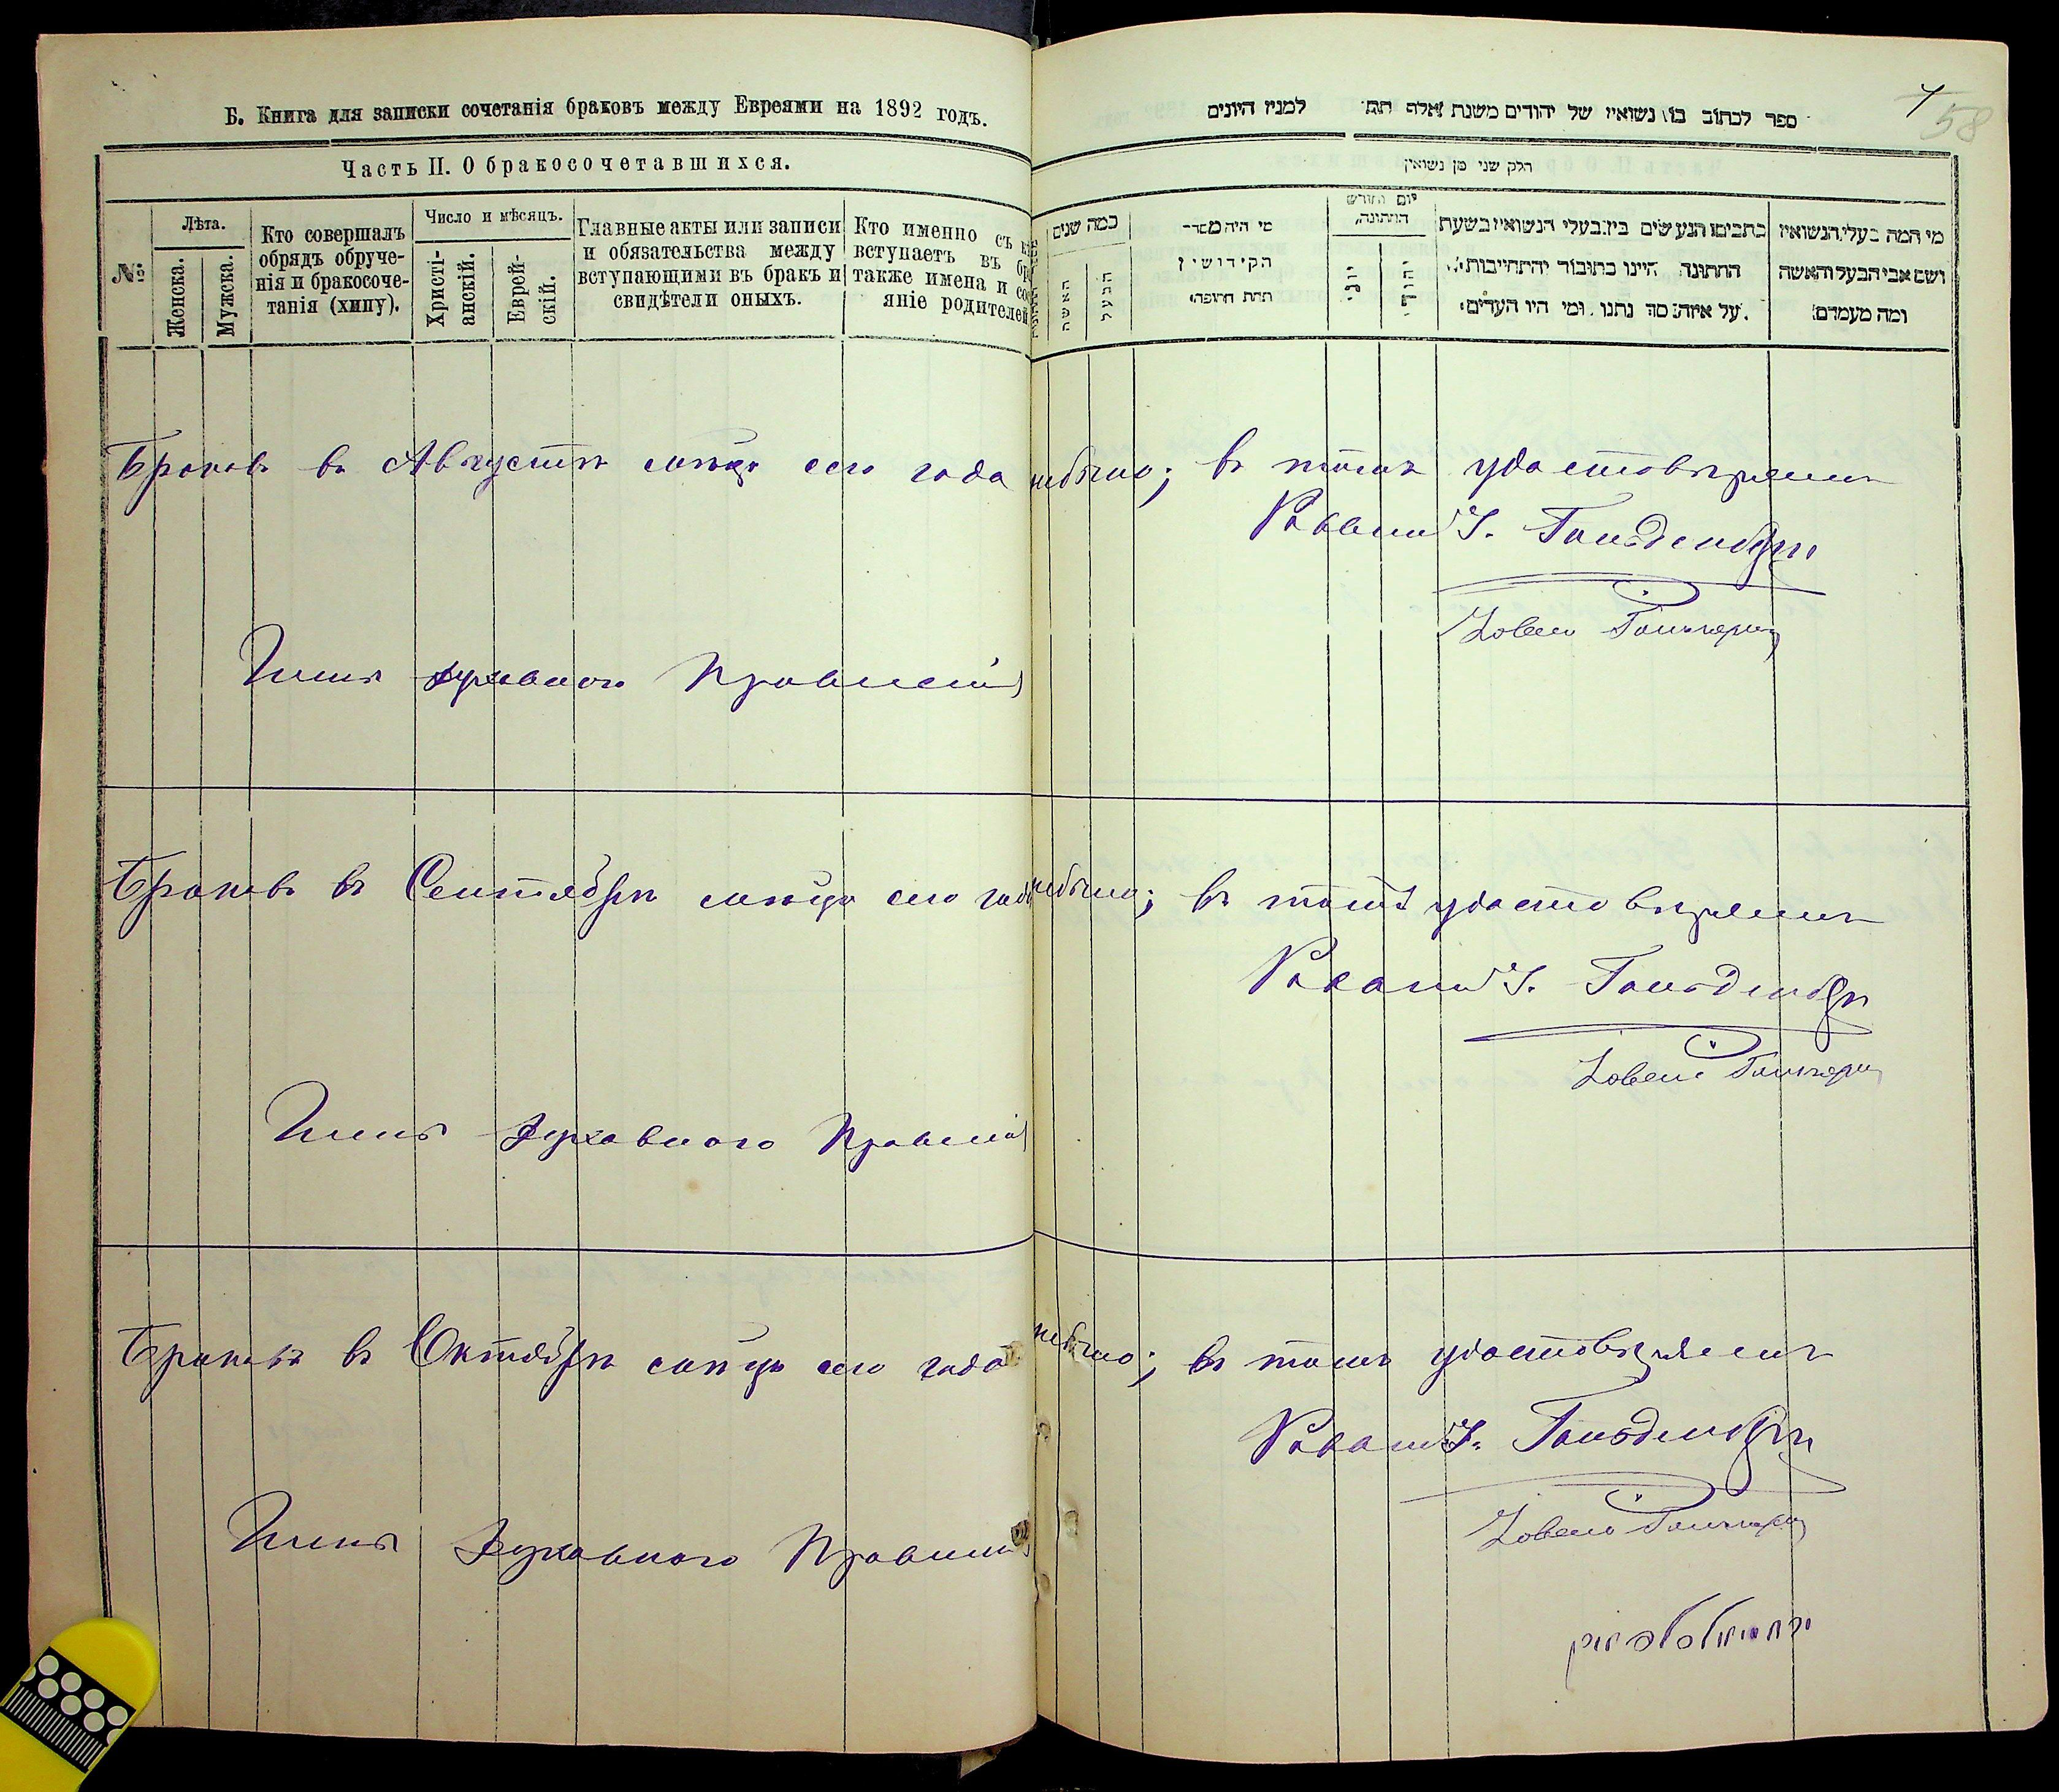 Б. Книга для записки сочетанія браковъ между Евреями на 1892 годъ.
Часть II. О бракосочетавшихся.
№
Лѣта.
Женска.
Мужска.
Кто совершалъ
обрядъ обруче-
нія и бракосоче-
танія (хипу).
Число и мѣсяцъ.
Христі-
анскій.
Еврей-
скій.
Главные акты или записи
и обязательства между
вступающими въ бракъ и
свидѣтели оныхъ.
Кто именно съ
вступаетъ въ
также имена и
яніе родителей
58
ספר לכתוב בו נשואין של יהודים משנת אלף תת למנין היונים
חלק שני מן נשואין
מי המה בעלי הנשואין
ושם אבי הבעל והאשה
ומה מעמדם
כתבים הנעשים בין בעלי הנשואין בשעת
החתונה היינו כתובוד יהתחייבות
על איזה סך נתנו ומי היו העדים
יום וחודש
החתונה
יהודי
יוני
מי היה מסדר
הקידושין
תחת החופה
כמה שנים
הבעל
האשה
Браковъ въ Августѣ мѣсяцѣ сего года небыло; въ томъ удостовѣряемъ
Раввинъ І. Гольденбергъ
Члены духовнаго Правленія
Браковъ въ Сентябрѣ мѣсяцѣ сего года небыло; въ томъ удостовѣряемъ
Раввинъ І. Гольденбергъ
Члены Духовнаго Правленія
Браковъ въ Октябрѣ мѣсяцѣ сего года небыло; въ томъ удостовѣряемъ
Раввинъ І. Гольденбергъ
Члены Духовнаго Правленія